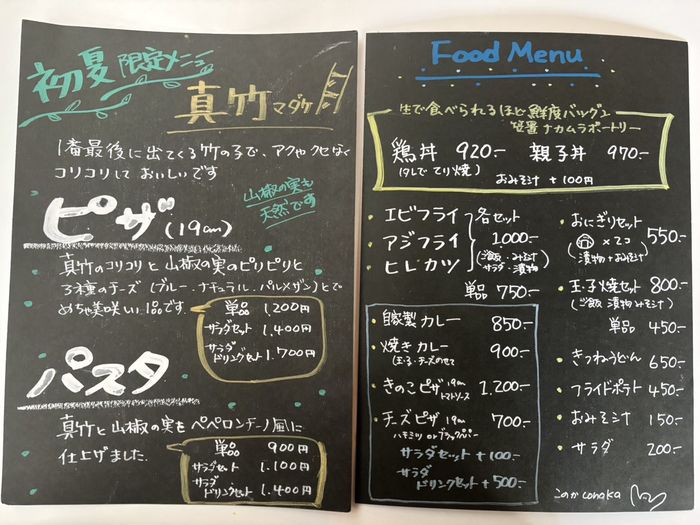 初夏 限定メニュー
真竹 マダケ
1番最後に出てくる竹の子で、アクやクセなく
コリコリして おいしいです
山椒の実も
天然です
ピザ(19cm)
真竹のコリコリと山椒の実のピリピリと
3種のチーズ(ブルー、ナチュラル、パルメザン)とで
めちゃ美味しい1品です。
単品 1,200円
サラダセット 1,400円
サラダ
ドリンクセット 1,700円
パスタ
真竹と山椒の実をペペロンチーノ風に
仕上げました。
単品 900円
サラダセット 1,100円
サラダ
ドリンクセット 1,400円
Food Menu
生で食べられるほど鮮度バツグン
ナカムラポートリー
鶏丼 920- 親子丼 970-
(タレで てり焼)
おみそ汁 +100円
・エビフライ
・アジフライ
・ヒレカツ
各セット
1,000-
(ご飯・みそ汁
サラダ・漬物)
単品 750-
・自家製カレー 850-
・焼きカレー 900-
(玉子・チーズのせて
・きのこピザ 19cm 1,200-
トマトソース
・チーズピザ 19cm 700-
ハチミツ or ブラックペパー
サラダセット +100-
サラダ
ドリンクセット +500-
・おにぎりセット 550-
(×2コ
漬物+おみそ汁)
・玉子焼セット 800-
(ご飯 漬物 みそ汁)
単品 450-
・きつねうどん 650-
・フライドポテト 450-
・おみそ汁 150-
・サラダ 200-
このか conoka